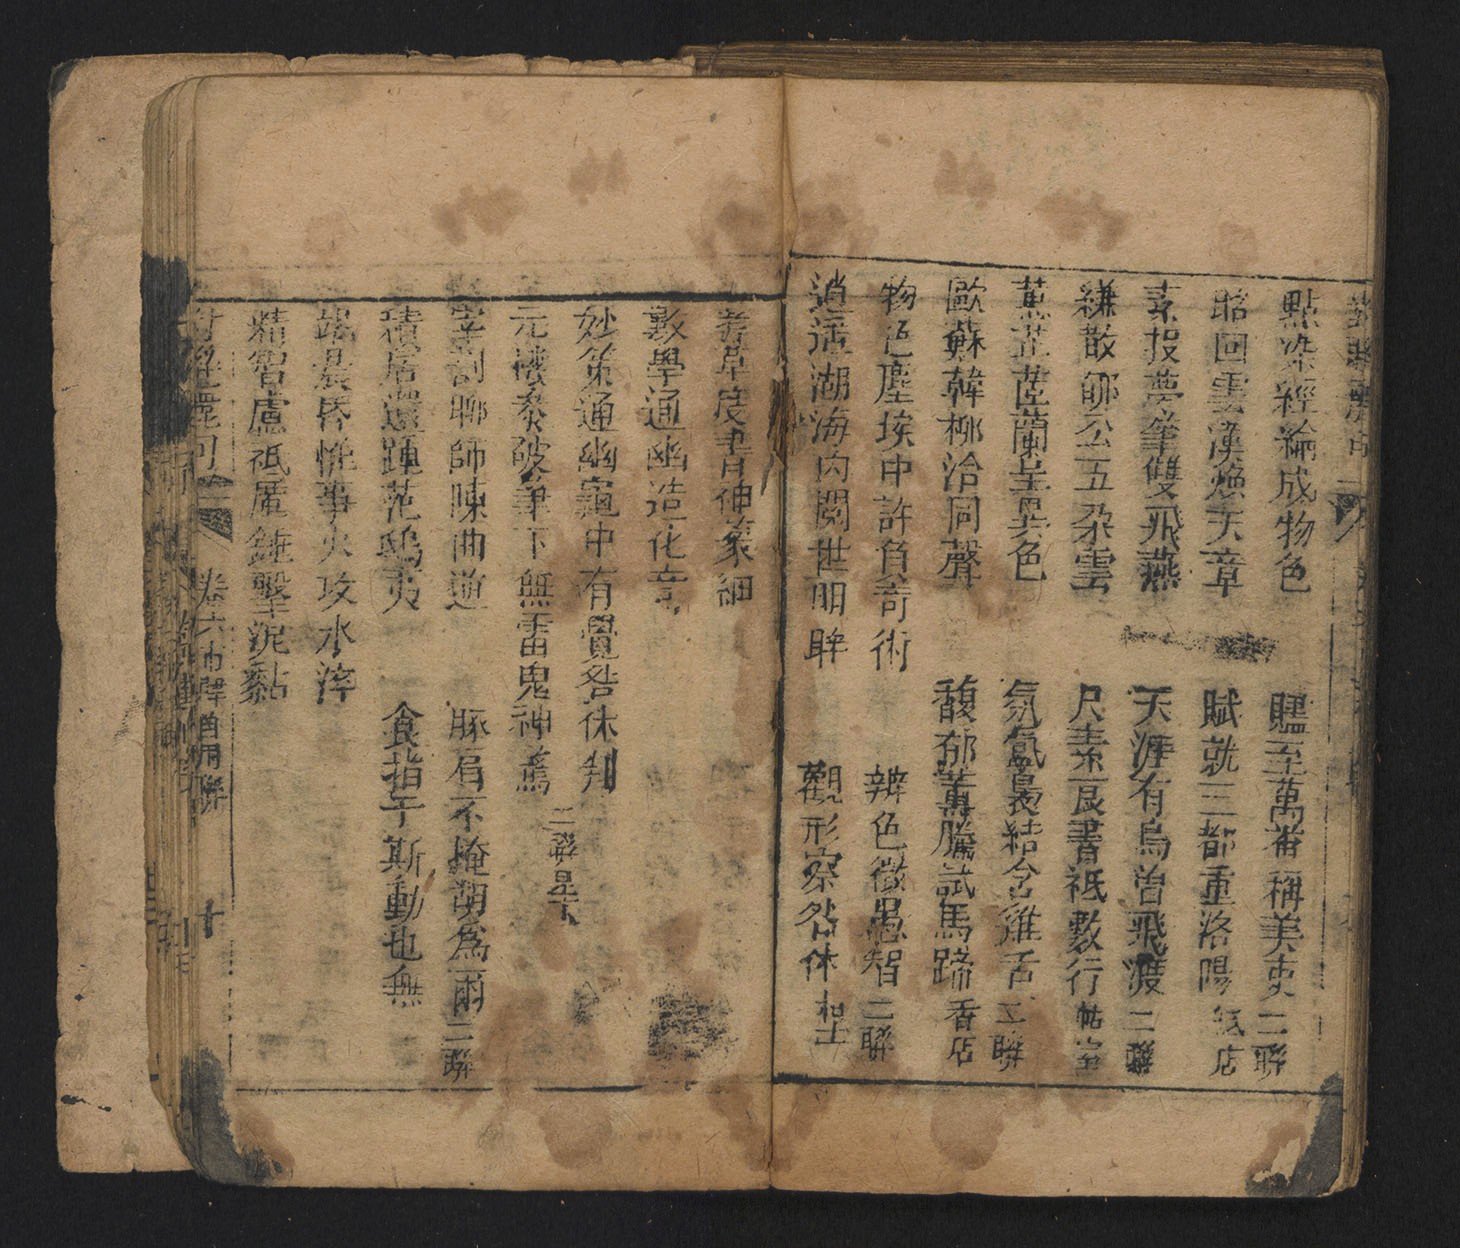 點染經綸成物色 賦至萬番稱美吏 二聯
昭回雲漢煥天章 賦就三都重洛陽 紙店
素投夢筆雙飛燕 天涯有鳥曾飛渡 二聯
緘散郇公五朶雲 尺素 良書祗數行 帖
蕙芷茝蘭呈異色 氛氳裊結含雞舌 二聯
歐蘇韓柳洽同聲 馥郁薰騰試馬蹄 香店
物色塵埃中許負奇術 辨色徵愚智 二聯
逍遥湖海內閱世明眸 觀形察咎休 相士
著草度書冑伸篆細
敦學通幽造化竒
妙策通幽龜中有覺咎休判
元機泰破筆下無雷鬼神驚 二聯星士
宰割聊師陳曲逆 豚肩不掩胡爲爾 二聯
積居還踵范鴟夷 食指于斯動也無
惟事火攻水滓
精智慮祗厪錘擊泥黏
卷六 聯 十